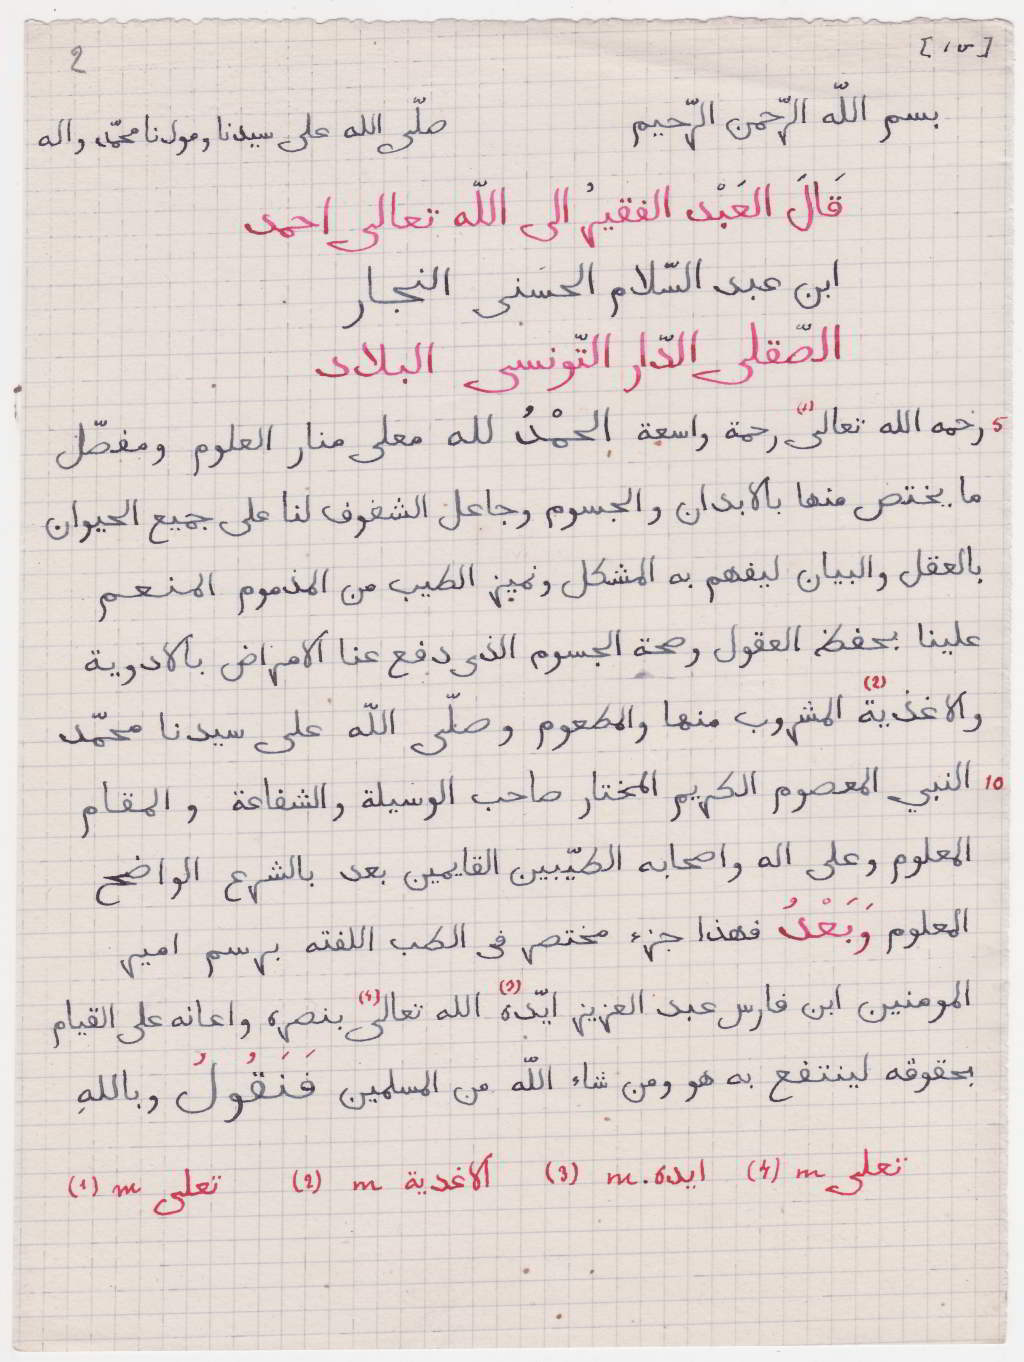 [١٥] 2
بسم اللّه الرّحمن الرّحيم صلّى الله على سيدنا ومولانا محمّد واله
قَالَ العَبْد الفقيرُ الى اللّه تعالى احمد
ابن عبد السّلام الحسَنى النجار
الصّقلى الدّار التّونسى البلاد
5 رحمه الله تعالى (1) رحمة واسعة الحمْدُ لله معلى منار العلوم ومفصّل
ما يختص منها بالابدان والجسوم وجاعل الشفوف لنا على جميع الحيوان
بالعقل والبيان ليفهم به المشكل ونميز الطيب من المذموم المنعم
علينا بحفظ العقول وصحة الجسوم الذى دفع عنا الامراض بالادوية
والاغذية (2) المشروب منها والمطعوم وصلّى اللّه على سيدنا محمّد
10 النبي المعصوم الكريم المختار صاحب الوسيلة والشفاعة والمقام
المعلوم وعلى اله واصحابه الطيّبين القايمين بعد بالشرع الواضح
المعلوم وَبَعْدُ فهذا جزء مختصر فى الطب اللفته برسم امير
المومنين ابن فارس عبد العزيز ايّده (3) الله تعالى (4) بنصره واعانه على القيام
بحقوقه لينتفع به هو ومن شاء اللّه من المسلمين فَنَقُولُ وباللهِ
(1) m تعلى (2) m الاغدية (3) m. ايده (4) m تعلى